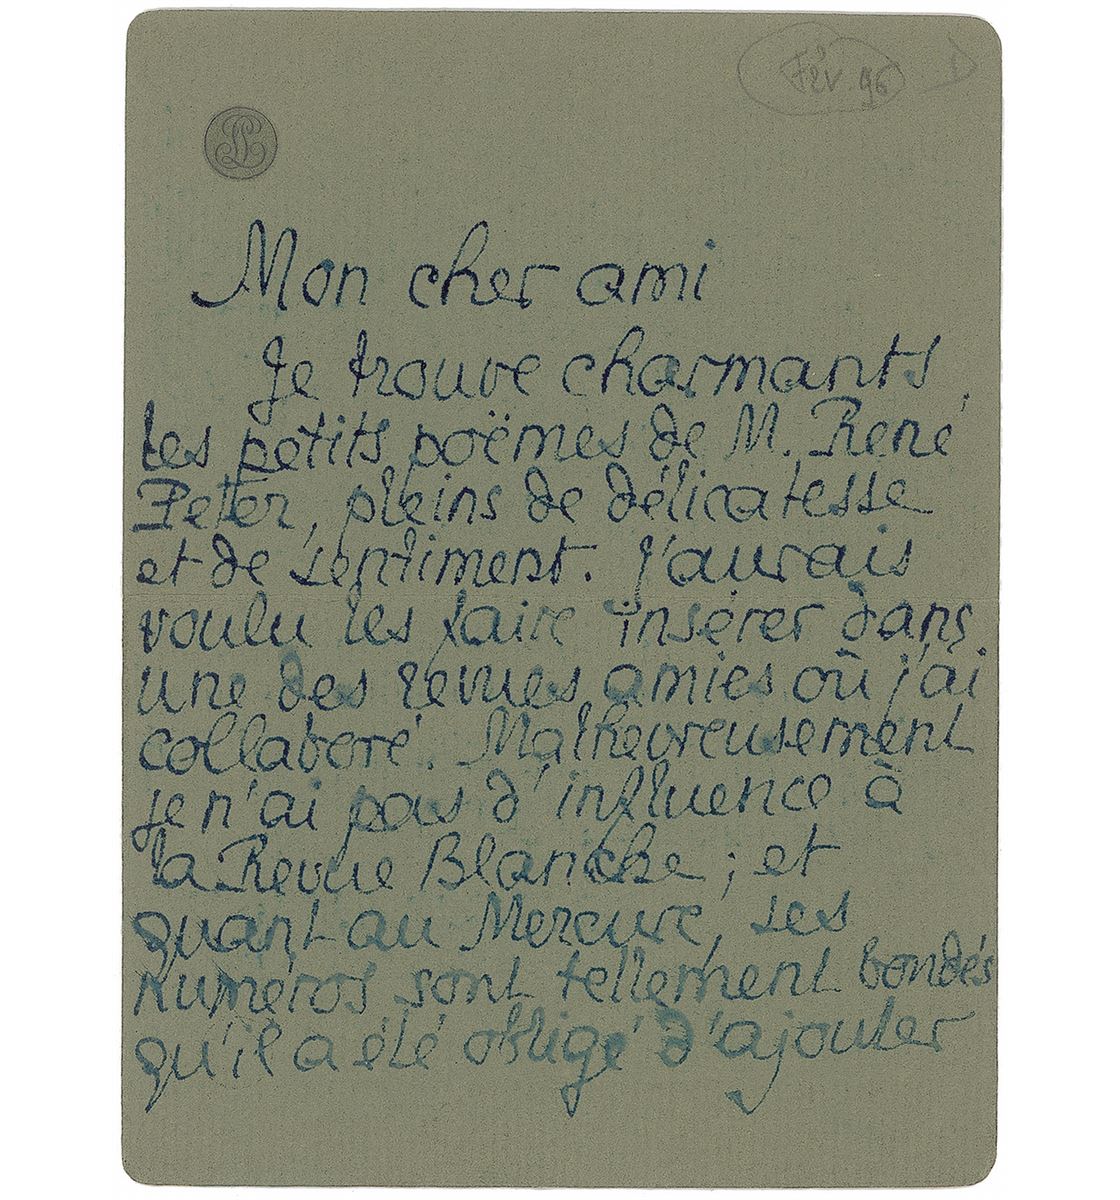 Fév. 96
PL
Mon cher ami
Je trouve charmants
les petits poëmes de M. René
Peter, pleins de délicatesse
et de sentiment. J'aurais
voulu les faire insérer dans
une des revues amies où j'ai
collaboré. Malheureusement
je n'ai pas d'influence à
la Revue Blanche ; et
quant au Mercure, ses
numéros sont tellement bondés
qu'il a été obligé d'ajouter